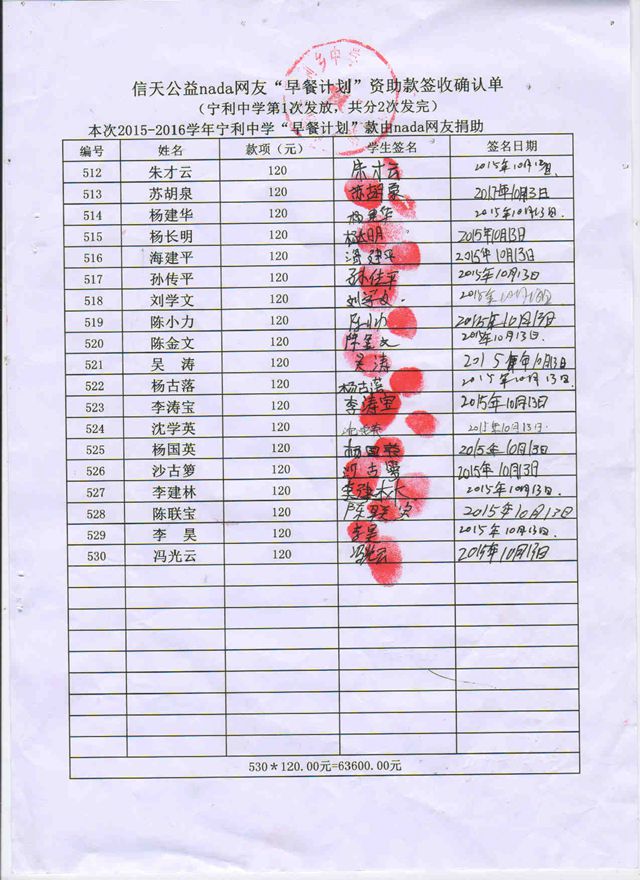 信天公益nada网友“早餐计划”资助款签收确认单
(宁利中学第1次发放，共分2次发完)
本次2015-2016学年宁利中学“早餐计划”款由nada网友捐助
编号 姓名 款项（元） 学生签名 签名日期
512 朱才云 120 朱才云 2015年10月13日.
513 苏胡泉 120 苏胡泉 2017年10月3日
514 杨建华 120 杨建华 2015年10月13日.
515 杨长明 120 杨长明 2015年10月13日
516 海建平 120 海建平 2015年10月13日
517 孙传平 120 孙传平 2015年10月13日
518 刘学文 120 刘学文 2015年10月13日
519 陈小力 120 陈小力 2015年10月13日
520 陈金文 120 陈金文 2015年10月13日
521 吴 涛 120 吴涛 2015年10月13日
522 杨古落 120 杨古落 2015年10月13日.
523 李涛宝 120 李涛宝 2015年10月13日
524 沈学英 120 沈学英 2015年10月13日.
525 杨国英 120 杨国英 2015年10月13日
526 沙古箩 120 沙古箩 2015年10月13日
527 李建林 120 李建林 2015年10月13日.
528 陈联宝 120 陈联宝 2015年10月13日
529 李 昊 120 李昊 2015年10月13日.
530 冯光云 120 冯光云 2015年10月13日
530*120.00元=63600.00元